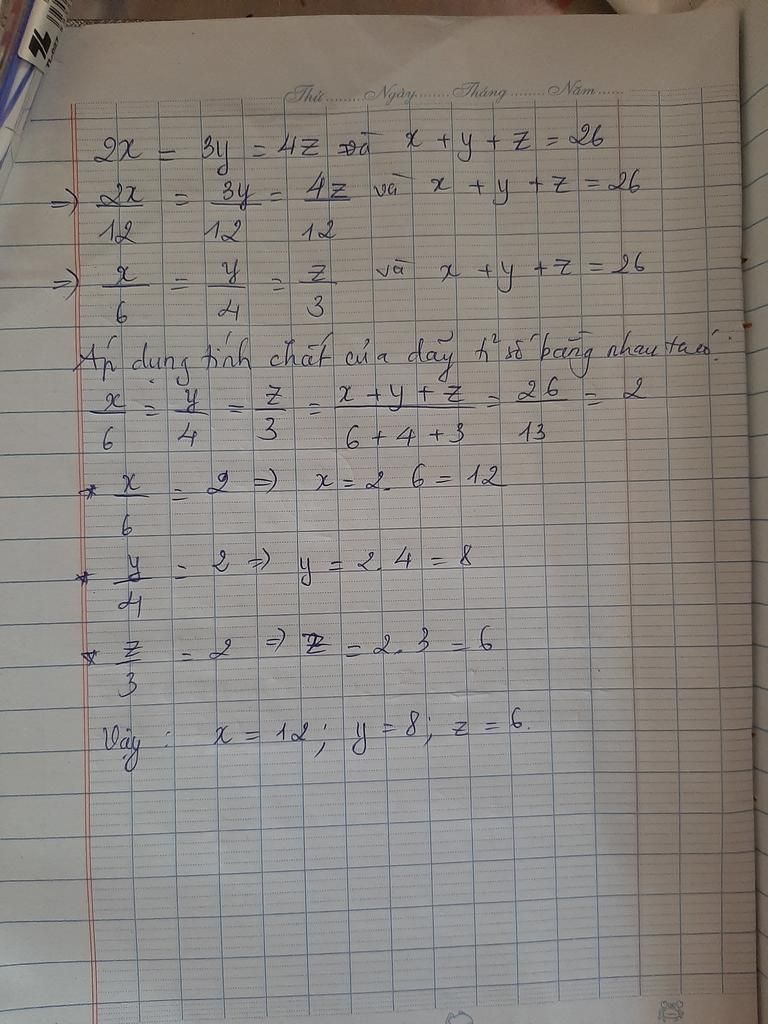 Thứ.........Ngày........Tháng........Năm......
2x = 3y = 4z và x + y + z = 26
=> 2x/12 = 3y/12 = 4z/12 và x + y + z = 26
=> x/6 = y/4 = z/3 và x + y + z = 26
Áp dụng tính chất của dãy t² số bằng nhau ta có:
x/6 = y/4 = z/3 = x + y + z/6 + 4 + 3 = 26/13 = 2
* x/6 = 2 => x = 2. 6 = 12
* y/4 = 2 => y = 2. 4 = 8
* z/3 = 2 => z = 2. 3 = 6
Vậy: x = 12; y = 8; z = 6.